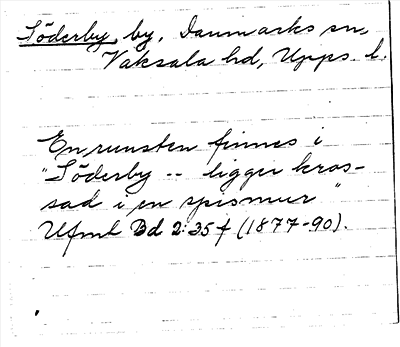 Söderby, by, Danmarks sn,
Vaksala hd, Upps. l.
En runsten finnes i
"Söderby -- ligger kros-
sad i en spismur"
Ufmt Bd 2:25 f (1877-90).